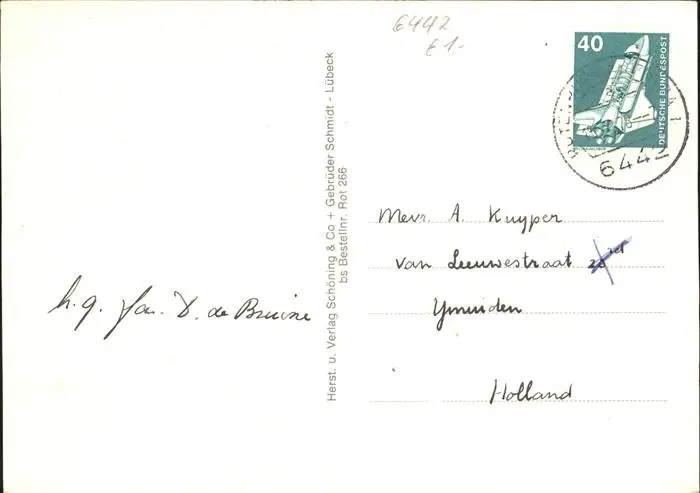 6442
£ 1.-
40
DEUTSCHE BUNDESPOST
6442
Herst. u. Verlag Schöning & Co + Gebrüder Schmidt - Lübeck
bs Bestellnr. Rot 266
Mevr. A. Kuyper
van Leeuwestraat
Ymuiden
Holland
h.g. fam. D. de Bruine